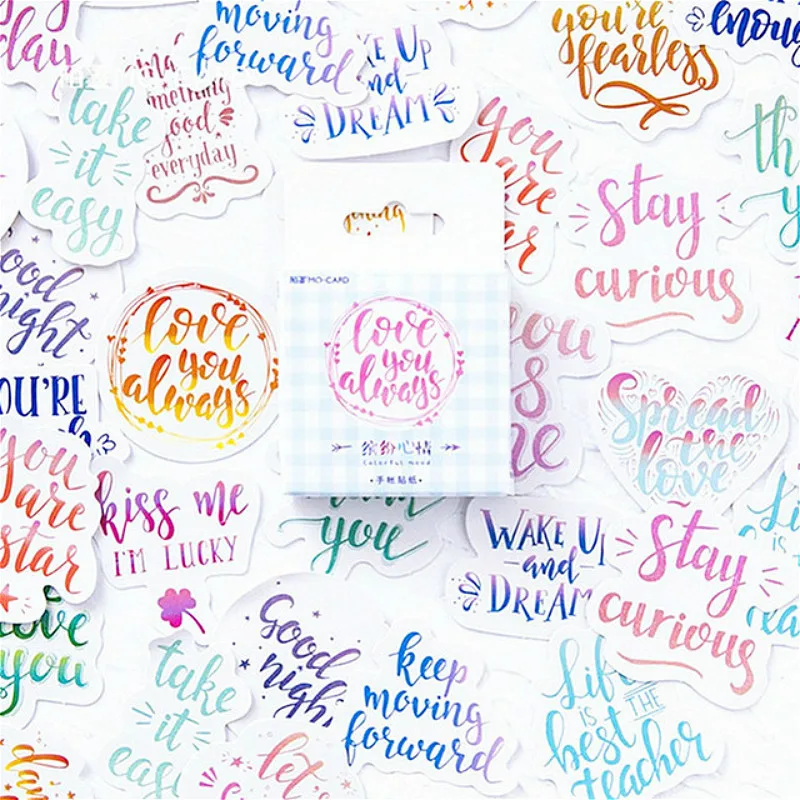 moving
forward
Wake Up
and
DREAM
you're
fearless
enough
play
take
it
easy
something
good
everyday
you
are
star
Stay
curious
good
night
YOU'RE
love
you
always
陌墨 MO·CARD
love
you
always
缤纷心情
Colorful mood
·手帐贴纸·
you
Spread
the
love
you
are
star
kiss me
I'M LUCKY
you
WAKE UP
and
DREAM
Stay
curious
love
you
take
it
easy
Good
night
keep
moving
forward
Life
IS THE
best
teacher
let's